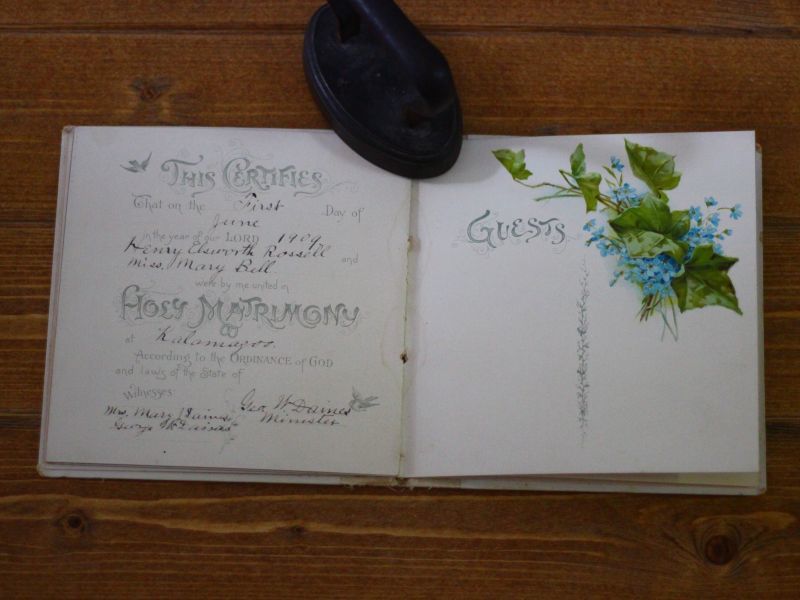 THIS CERTIFIES
That on the First Day of
June
in the year of our LORD 1909
Henry Elsworth Rossell and
Miss. Mary Bell
were by me united in
HOLY MATRIMONY
at Kalamazoo.
According to the ORDINANCE of GOD
and laws of the State of
Witnesses:
Geo. W. Daines
Minister
Mrs. Mary Daines
George W Daines
GUESTS